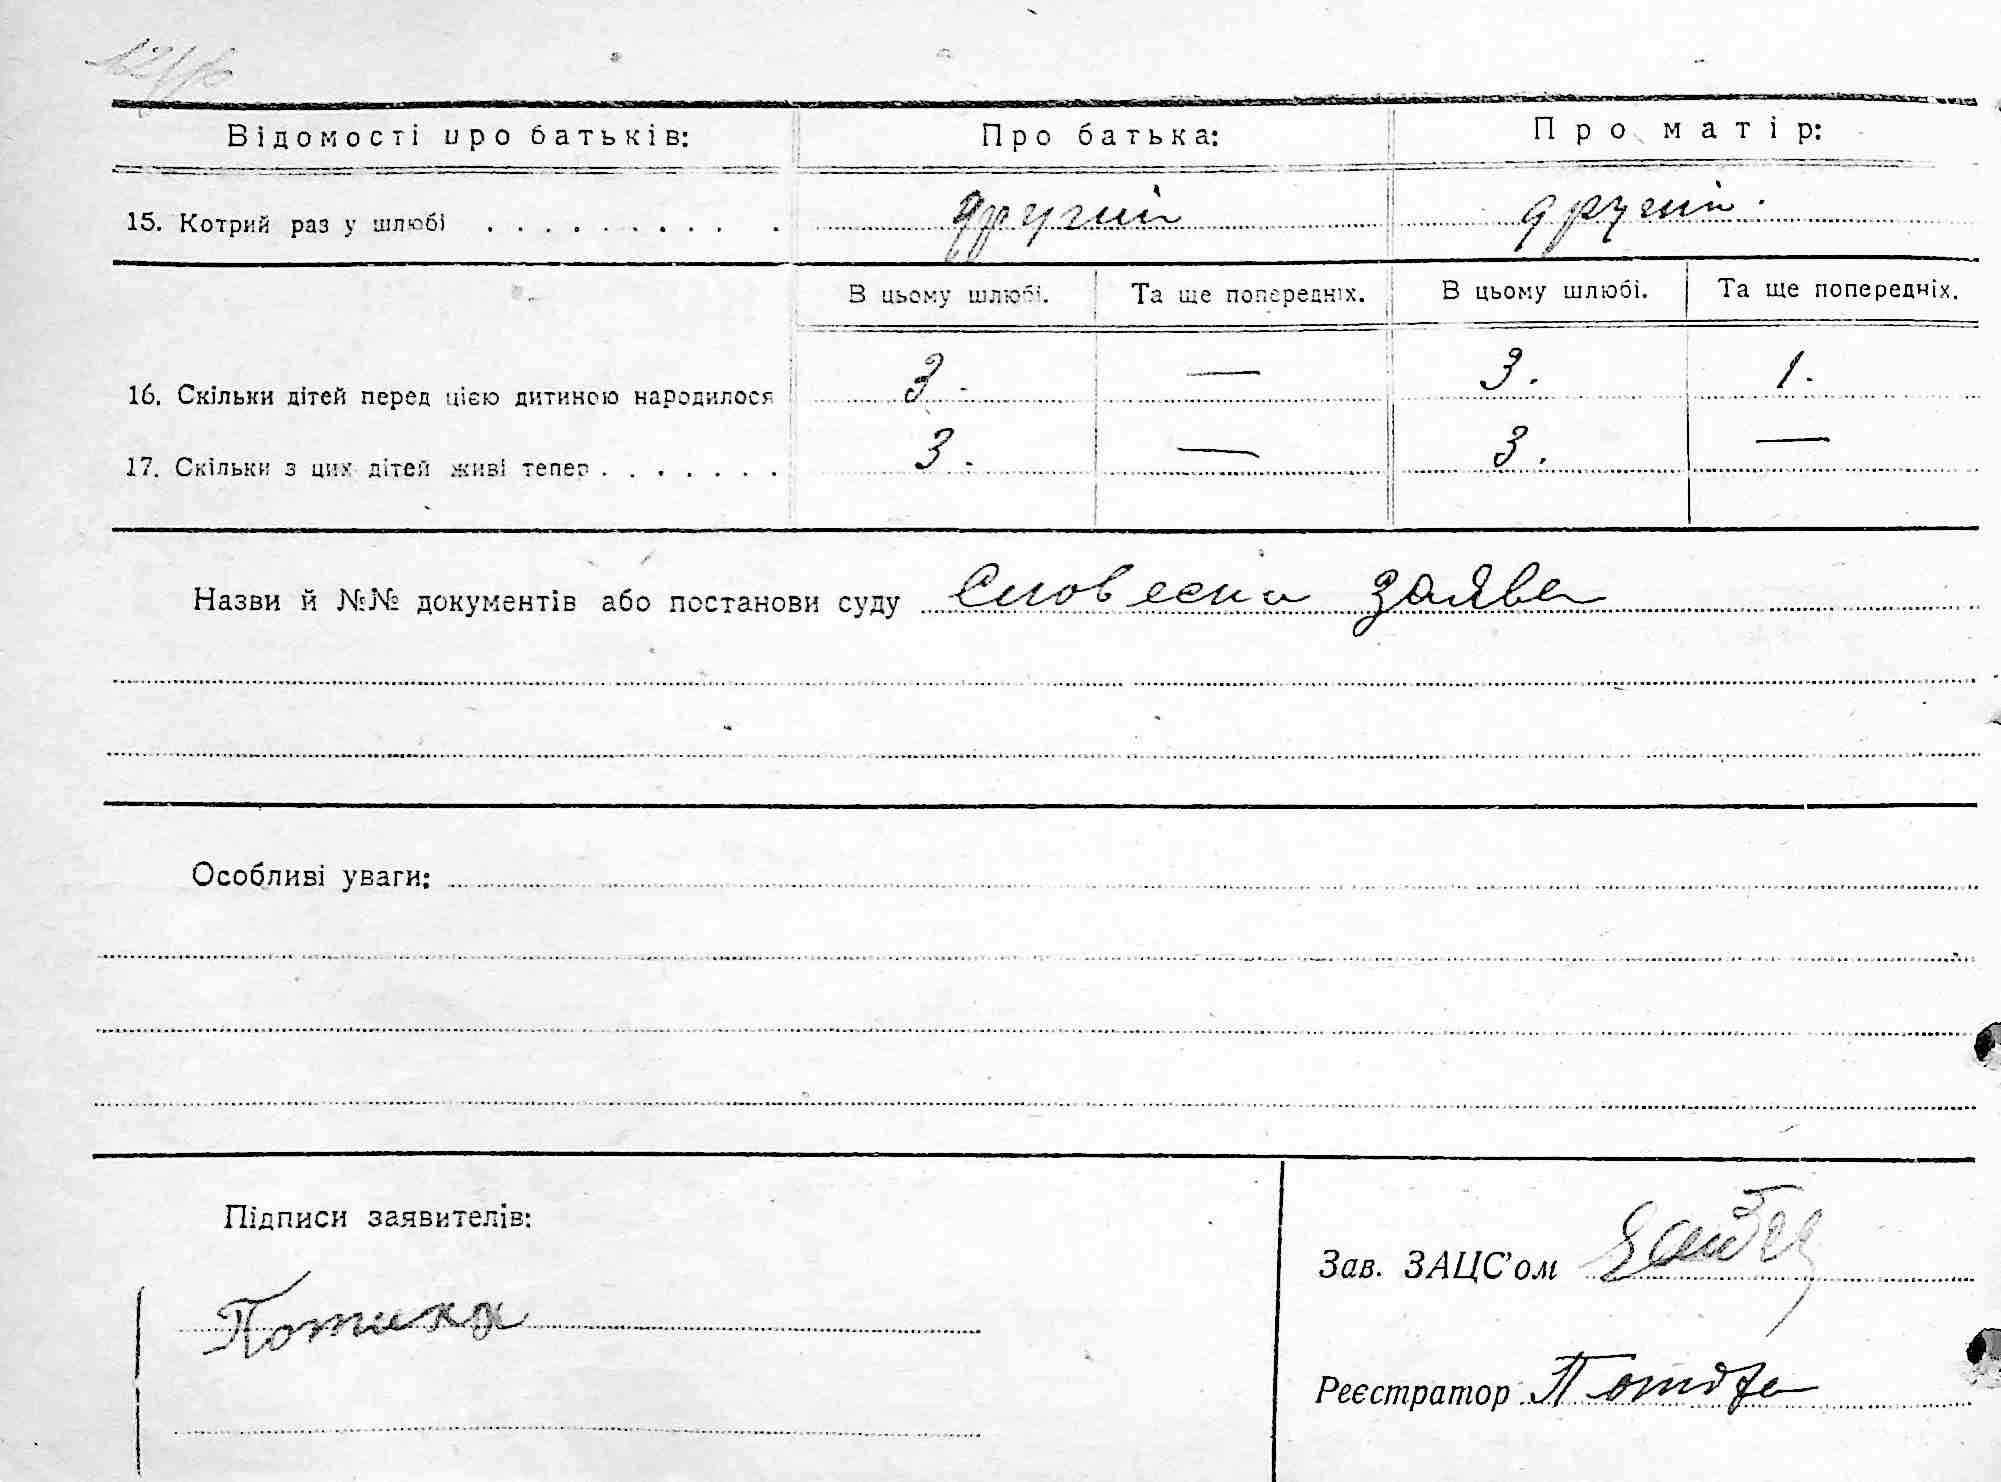 Відомості про батьків: Про батька: Про матір:
15. Котрий раз у шлюбі . . . . . . . . . . другий другий.
В цьому шлюбі. Та ще попередніх. В цьому шлюбі. Та ще попередніх.
16. Скільки дітей перед цією дитиною народилося 3. — 3. 1.
17. Скільки з цих дітей живі тепер . . . . . . . 3. — 3. —
Назви й №№ документів або постанови суду Словесна заява
Особливі уваги:
Підписи заявителів:
Зав. ЗАЦС’ом
Реєстратор